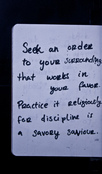 Seek an order
to your surroundings
that works in
your favor.
Practice it religiously
for discipline is
a savory saviour.